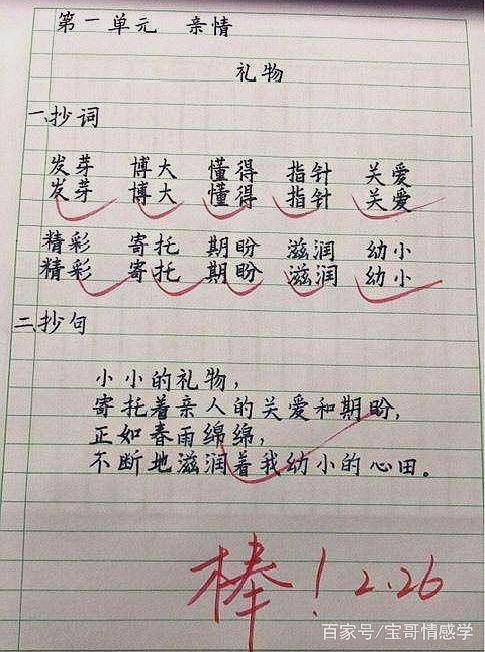 第一单元 亲情
礼物
一、抄词
发芽 博大 懂得 指针 关爱
发芽 博大 懂得 指针 关爱
精彩 寄托 期盼 滋润 幼小
精彩 寄托 期盼 滋润 幼小
二、抄句
小小的礼物，
寄托着亲人的关爱和期盼，
正如春雨绵绵，
不断地滋润着我幼小的心田。
棒！2.26
百家号/宝哥情感学